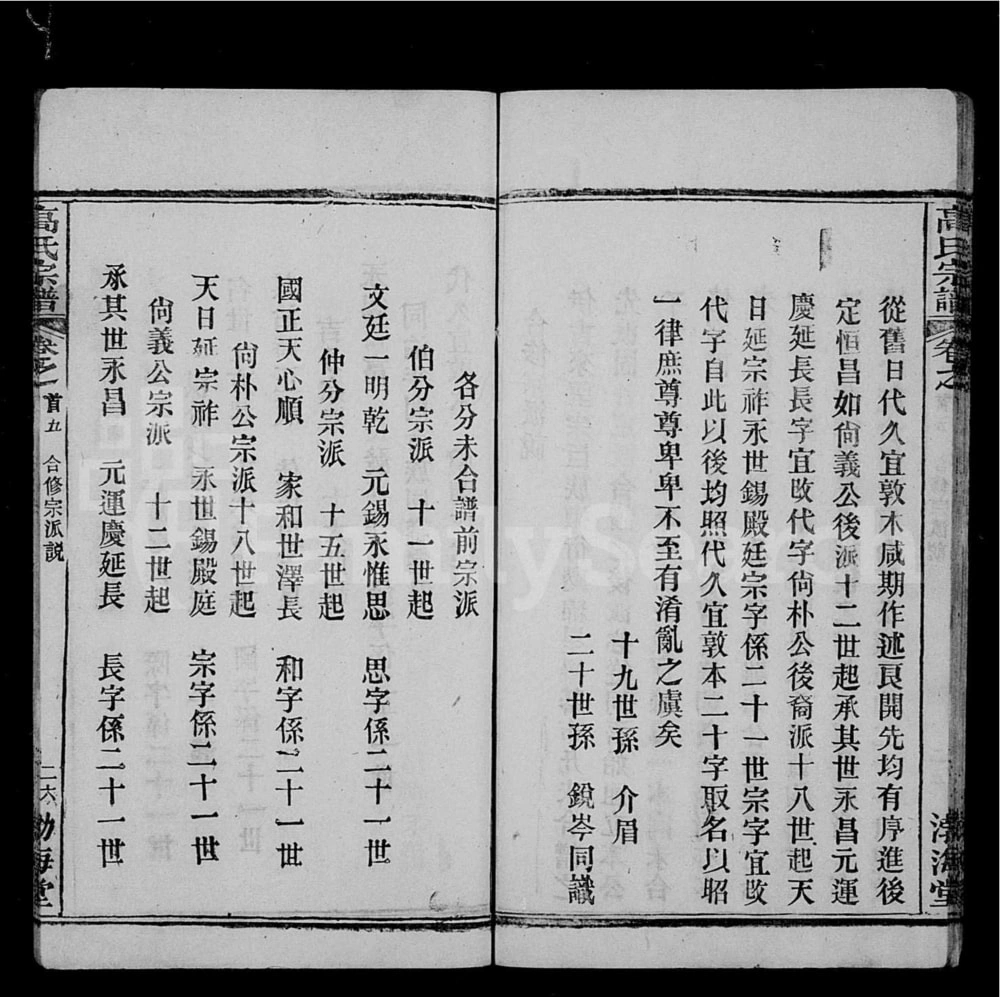 高氏宗譜
卷之
渤海堂
從舊日代久宜敦木咸期作述良開先均有序進後
定恒昌如尙義公後派十二世起承其世永昌元運
慶延長長字宜改代字尙朴公後裔派十八世起天
日延宗祚永世錫殿廷宗字係二十一世宗字宜改
代字自此以後均照代久宜敦本二十字取名以昭
一律庶尊尊卑卑不至有淆亂之虞矣
十九世孫 介眉
二十世孫 銳岑同識
各分未合譜前宗派
伯分宗派 十一世起
文廷一明乾 元錫永惟思 思字係二十一世
仲分宗派 十五世起
國正天心順 家和世澤長 和字係二十一世
尙朴公宗派十八世起
天日延宗祚 永世錫殿庭 宗字係二十一世
尙義公宗派 十二世起
承其世永昌 元運慶延長 長字係二十一世
高氏宗譜
卷之首五 合修宗派說
二六
渤海堂